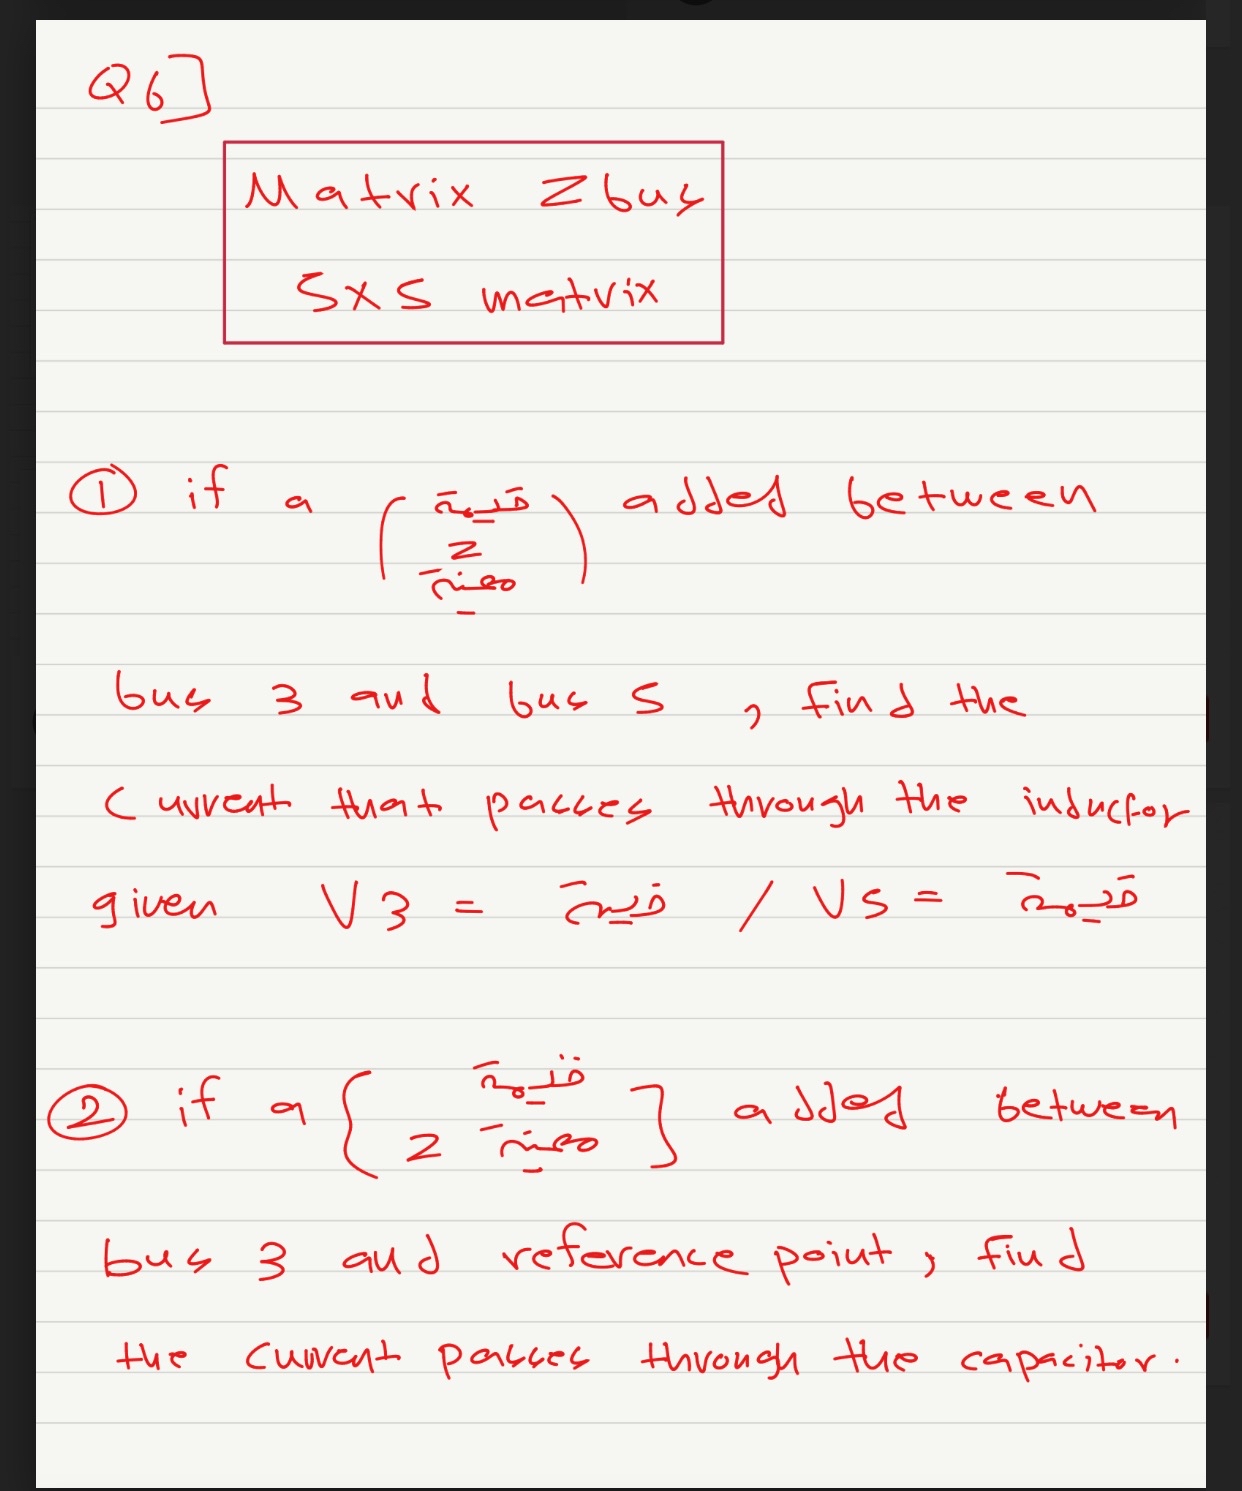 Q6]
Matrix Zbus
5x5 matrix
① if a (قيمة Z معينة) added between
bus 3 and bus 5 , find the
Current that passes through the inductor
given V3 = قيمة / V5 = قيمة
② if a { قيمة Z معينة ] added between
bus 3 and reference point, find
the current passes through the capacitor.